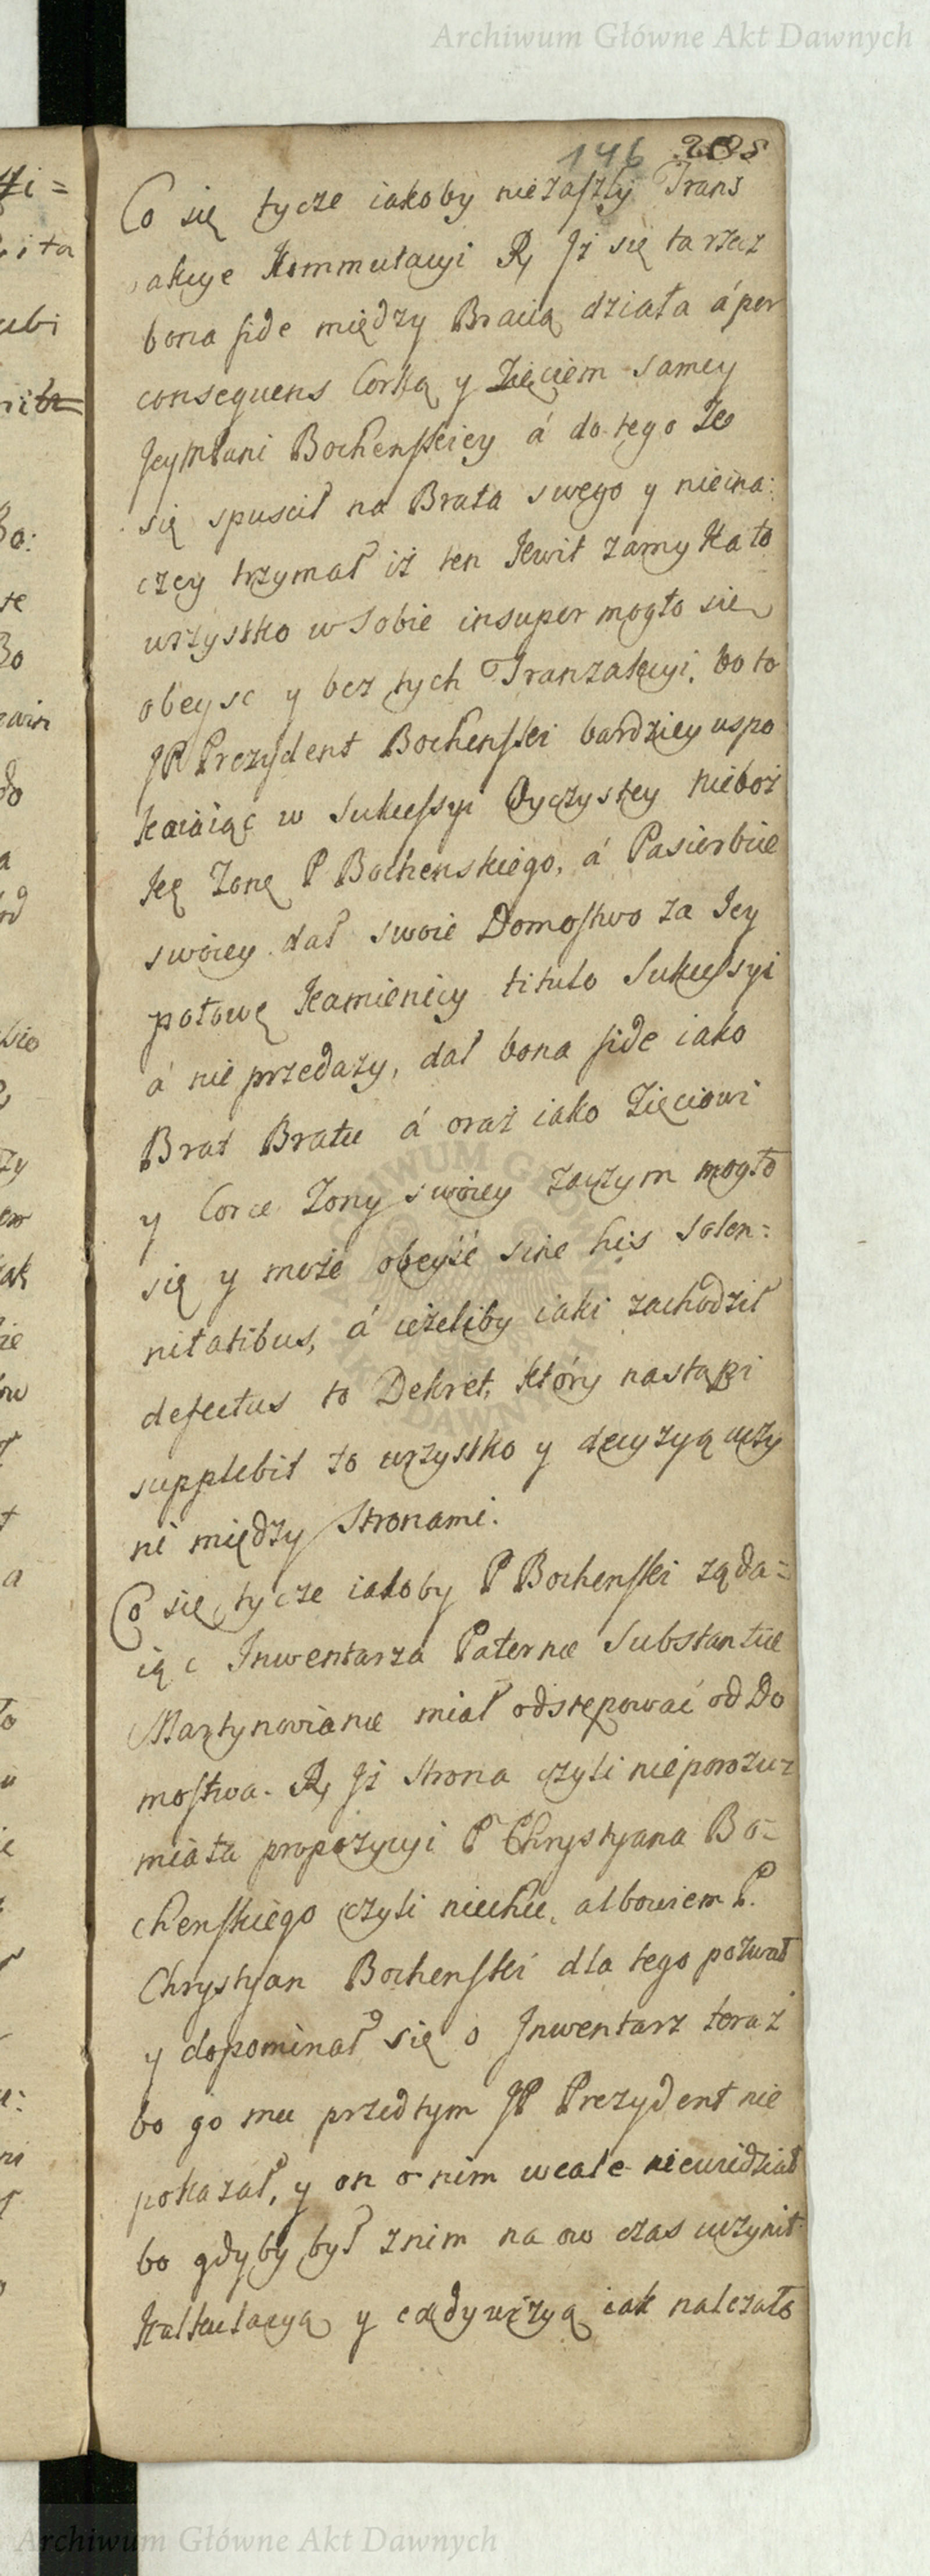 Archiwum Główne Akt Dawnych
146 205
Co się tycze iakoby niezaszły Trans
akcye Kommutacyi R, Jż się ta rzecz
bona fide między Bracią działa á per
consequens Corką y Zięciem samey
JeyMPani Bochenskiey á do tego że
się spuscił na Brata swego y nieina:
czey trzymał iż ten Kwit zamyka to
wszystko w sobie insuper mogło się
obeysc y bez tych Tranzakcyi, bo to
JP Prezydent Bochenski bardziey uspo
kaiaiąc w Sukcessyi Oyczystey nieboż
kę Zonę P Bochenskiego, á Pasierbice
swoiey dał swoie Domostwo za Jey
połowę Kamienicy titulo Sukcessyi
á nie przedaży, dał bona fide iako
Brat Bratu á oraz iako Zięciowi
y Corce Zony swoiey zaczym mogło
się y może obeyść sine his Solen=
nitatibus, á ieżeliby iaki zachodził
defectus to Dekret, który nastąpi
supplebit to wszystko y decyzyą uczy
ni między Stronami.
Co się tycze iakoby P Bochenski ząda=
iąc Inwentarza Paternæ Substantiæ
Martynovianæ miał odstępować od Do
mostwa. R, Jż Strona czyli nieporozu=
miała propozycyi P Chrystyana Bo=
chenskiego czyli niechce, albowiem P.
Chrystyan Bochenski dla tego pozwał
y dopominał się o Jnwentarz teraz
bo go mu przedtym JP Prezydent nie
pokazał, y on o nim wcale niewidział
bo gdyby był znim na ow czas uczynił
Kalkulacyą y exdywizyą iak należało
Archiwum Główne Akt Dawnych